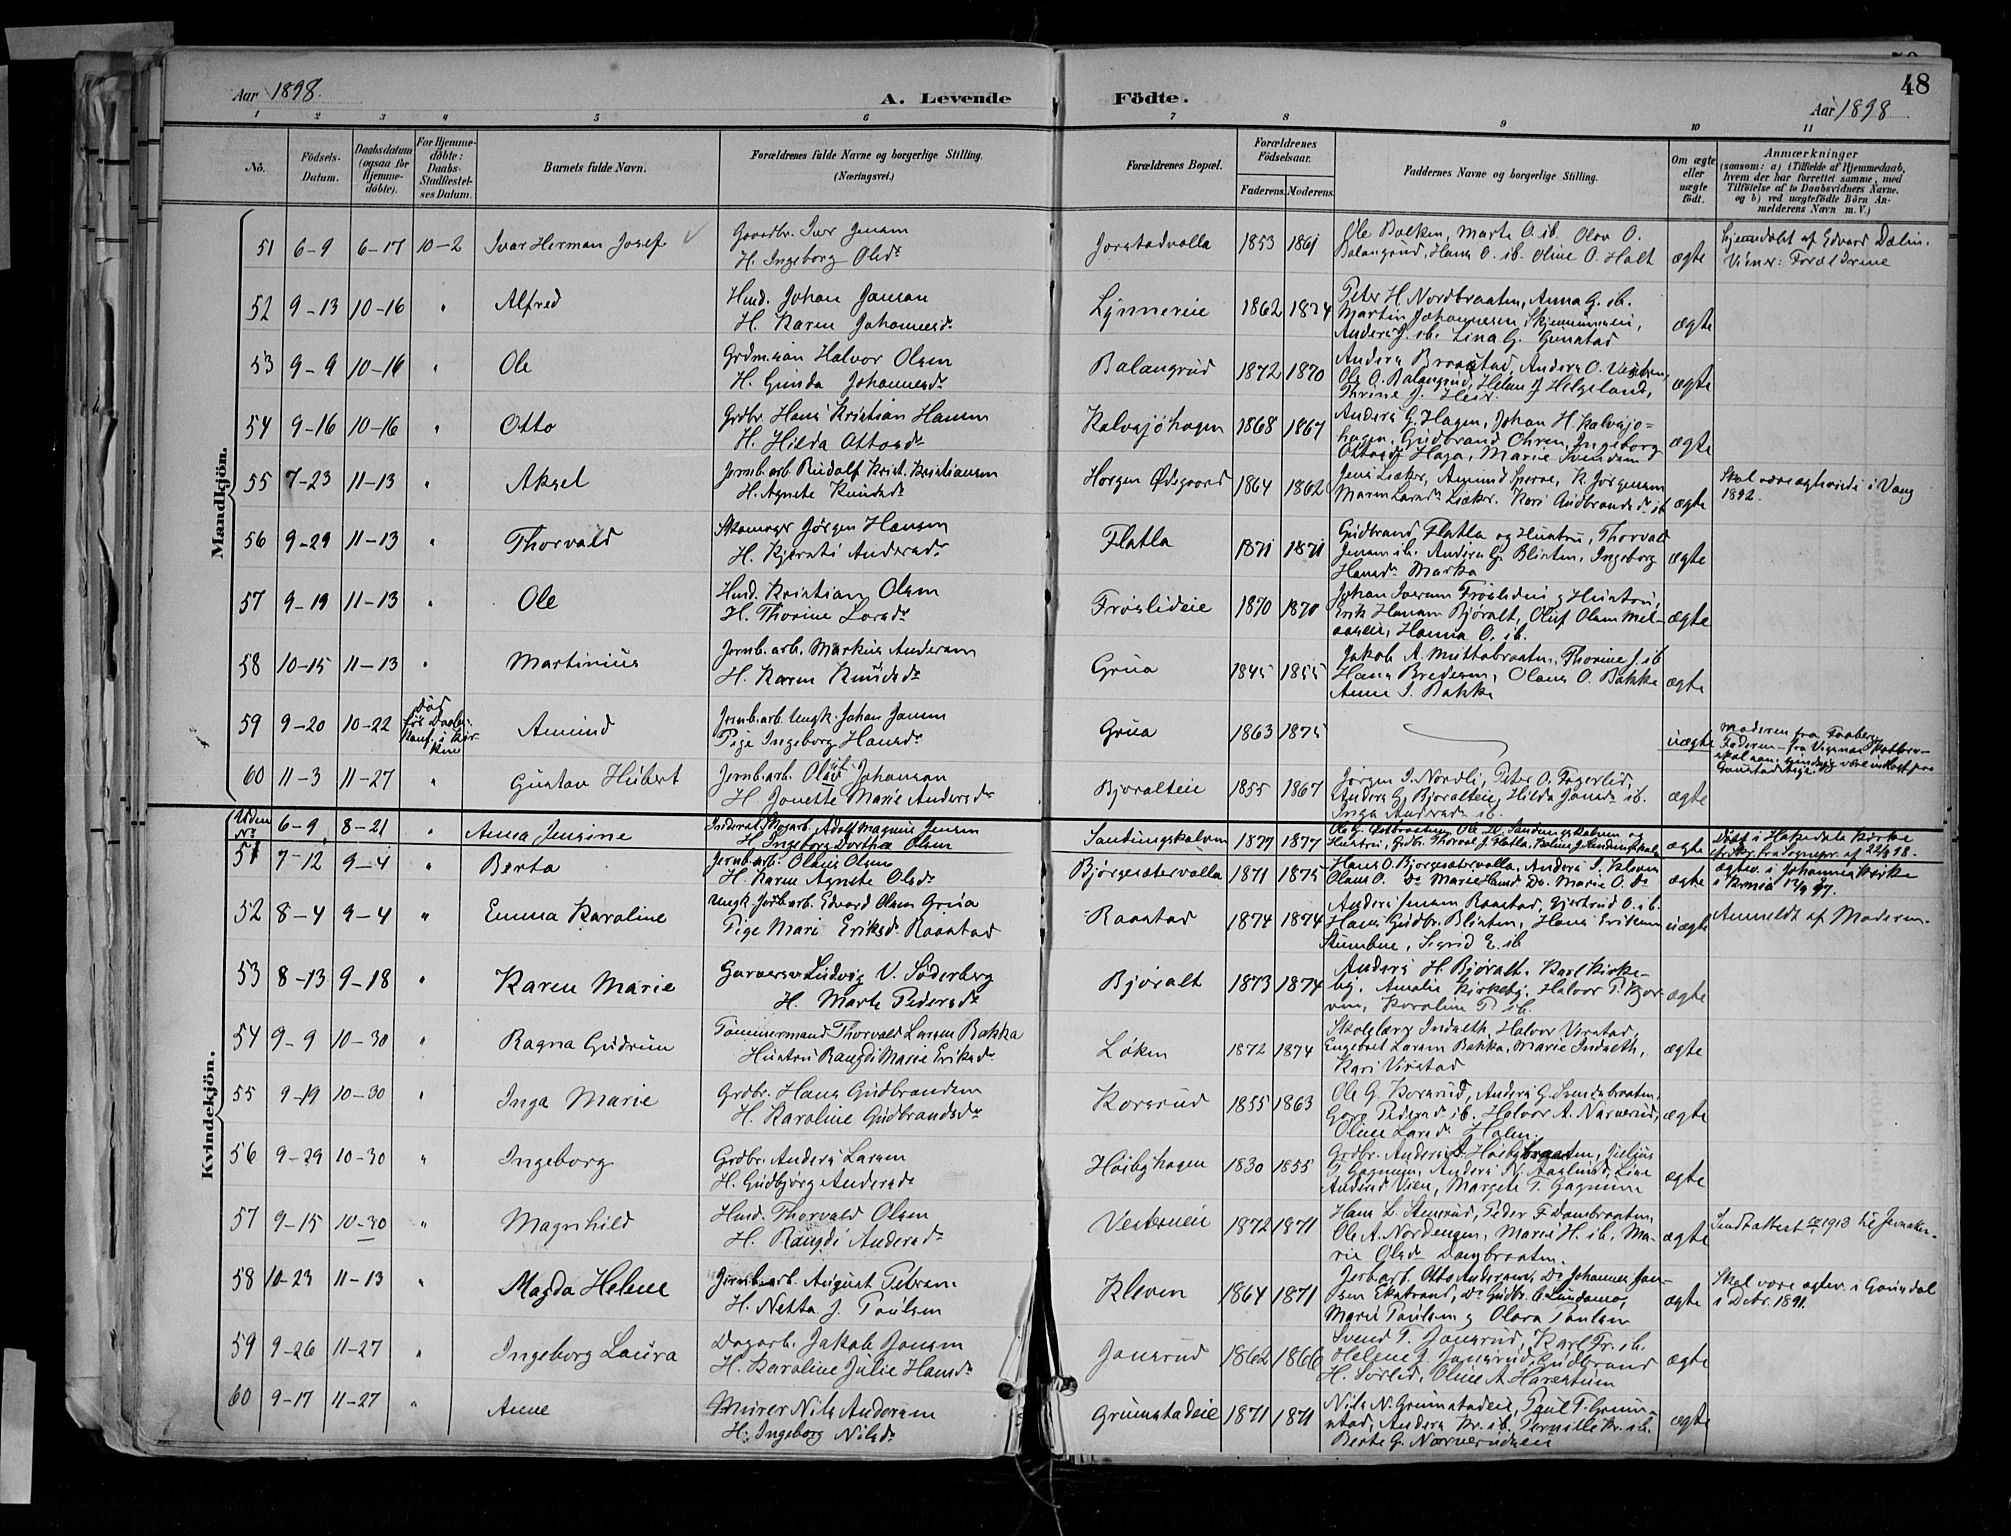 48
Aar 1898.
A. Levende Födte.
Aar 1898
1 2 3 4 5 6 7 8 9 10 11
No.
Födsels-Datum.
Daabsdatum (ogsaa for Hjemme-döbte).
For Hjemme-döbte: Daabs-Stadfæstel-ses Datum.
Barnets fulde Navn.
Forældrenes fulde Navne og borgerlige Stilling.
(Næringsvei.)
Forældrenes Bopæl.
Forældrenes Födselsaar.
Faderens. Moderens.
Faddernes Navne og borgerlige Stilling.
Om ægte eller uægte födt.
Anmærkninger
(saasom: a) i Tilfælde af Hjemmedaab, hvem der har forrettet samme, med Tilföielse af to Daabsvidners Navne. og b) ved uægtefödte Börn An-melderens Navn m. V.)
Mandkjön.
51 6-9 6-17 10-2 Ivar Herman Josef Gaardbr. Iver Jensen
H. Ingeborg Olsdr Jorstadvolla 1853 1861 Ole Bakken, Marte O. ib. Olav O.
Balangrud, Hans O. ib. Oline O. Holt ægte Hjemdøbt af Edvard Dælin.
Vidner: Forældrene
52 9-13 10-16 " Alfred Husm. Johan Jansen
H. Karen Johannesdr Lynnereie 1862 1874 Peter H. Nordbraaten, Anna G. ib.
Martin Johannesen
Anders J. ib. Lina G. Grinstad ægte
53 9-9 10-16 " Ole Grdm.søn Halvor Olsen
H. Gunda Johannesdr Balangrud 1872 1870 Anders Braastad, Anders O.
Ole O. Balangrud, Helene J. Helgeland,
Thrine J. ægte
54 9-16 10-16 " Otto Grdbr. Hans Kristian Hansen
H. Hilda Ottosdr Kalvsjöhagen 1868 1867 Anders G. Hagen, Johan H. Kalvsjö-
hagen, Gudbrand Ohren, Ingeborg
Ottosdr Haga, Marie Svendsen ægte
55 7-23 11-13 " Aksel Jernb.arb. Rudolf Krist. Kristiansen
H. Agnete Knudsdr Horgen Ødegaard 1864 1862 Jens Liaker, Amund Sperre, K. Jørgensen
Maren Larsdr Liaker. Kari Gudbrandsdr ib ægte Skal være ægteviede i Vang
1892.
56 9-29 11-13 " Thorvald Skomager Jørgen Hansen
H. Kjersti Andersdr Flatla 1871 1871 Gudbrand Flatla og Hustru, Thorvald
Jensen ib. Anders G. Blinten, Ingeborg
Hansdr Marka ægte
57 9-19 11-13 " Ole Husm. Kristian Olsen
H. Thorine Larsdr Frøslideie 1870 1870 Johan Iversen Frøslideie og Hustru,
Erik Hansen Bjøralt, Oluf Olsen Mel-
aaseie, Hanna O. ib. ægte
58 10-15 11-13 " Martinius Jernb.arb. Markus Andersen
H. Karen Knudsdr Grua 1845 1855 Jakob A. Muttabraaten, Thorine J. ib
Hans Bredesen, Olaus O. Bakke
Anne I. Bakke ægte
59 9-20 10-22 død før Daabs-Kanf. i Kir-ken Amund Jernb.arb. Ungk. Johan Jansen
Pige Ingeborg Hansdr Grua 1863 1875 uægte Moderen fra Faaberg
Faderen fra Vigernæs
60 11-3 11-27 " Gustav Hubert Jernb.arb. Oluf Johansen
H. Jonette Marie Andersdr Bjøralteie 1855 1867 Jørgen J. Nordli, Peter O. Fagerlid,
Anders G. Bjøralteie, Hilda Jonsdr ib.
Inga Andersdr ib. ægte
Kvindekjön.
Uden No 6-9 8-21 " Anna Jensine Adolf Magnus Jensen
H. Ingeborg Dorthea Olsen Sandungskalven 1877 1877 ægte Døbt i Hakedals Kirke
51 7-12 9-4 " Berta Jernb.arb. Olaus Olsen
H. Karen Agnete Olsdr Bjørgesætervolla 1871 1875 Hans O. Bjørgesætervolla, Anders J. Kalven
Olaus O. Do Marie Hansd. Do. Marie O. Do ægte ægtev. i Johannes Kirke
i Kr.nia 12/9 97.
52 8-4 9-4 " Emma Karoline Ungk. Jordb.arb. Edvard Olsen Grua
Pige Mari Eriksdr Raastad Raastad 1874 1874 Anders Jensen Raastad, Gjertrud O. ib.
Hans Gudbr. Blinten, Hans Eriksen
Stumbne, Sigrid E. ib uægte Anmeldt af Moderen.
53 8-13 9-18 " Karen Marie Garversv. Ludvig V. Söderberg
H. Marte Pedersdr Bjøralt 1873 1874 Anders H. Bjøralt, Karl Kirke-
by, Amalie Kirkeby, Halvor P. Kjor-
ven, Karoline P. ib. ægte
54 9-9 10-30 " Ragna Gudrun Tømmermand Thorvald Larsen Bakka
Hustru Rangdi Marie Eriksdr Løken 1872 1874 Skolelærer Indseth, Halvor Virstad,
Engebret Larsen Bakka, Marie Indseth,
Kari Virstad ægte
55 9-19 10-30 " Inga Marie Grdbr. Hans Gudbrandsen
H. Karoline Gudbrandsdr Korsrud 1855 1863 Ole G. Korsrud, Anders G. Svendsbraaten,
Goro Pedersdr ib. Halvor A. Narverud,
Oline Larsdr Holm ægte
56 9-29 10-30 " Ingeborg Grdbr. Anders Larsen
H. Gudbjorg Andersdr Høibyhagen 1830 1855 Grdbr. Anders Høibybraaten,
T. Gagnum, Anders N. Aaslund, Line
Andersd Vien, Margete T. Gagnum ægte
57 9-15 10-30 " Magnhild Husm. Thorvald Olsen
H. Rangdi Andersdr Vesterneie 1872 1871 Hans L. Stensrud, Peder F. Dambraaten,
Ole A. Nordengen, Marie H. ib, Ma-
rie Olsdr Dambraaten. ægte
58 10-23 11-13 " Magda Helene Jernb.arb. August Petersen
H. Netta J. Paulsen Kleven 1864 1871 Jerb.arb. Otto Andersen, Do Johannes Jon-
sen Ekstrand, Do Gudbr. O. Lundamo,
Marie Paulsen og Olava Paulsen ægte Skal være ægtev. i Gausdal
i Debr. 1891.
59 9-26 11-27 " Ingeborg Laura Dagarb. Jakob Jansen
H. Karoline Julie Hansdr Jonsrud 1862 1866 Svend T. Jonsrud, Karl Fr. ib.
Helene J. Jonsrud, Gudbrand
H. Sørlie, Oline A. Harestuen ægte
60 9-17 11-27 " Anne Murer Nils Andersen
H. Ingeborg Nilsdr Grumstadeie 1871 1871 Nils N. Grumstadeie, Paul T. Grum-
stad, Anders Kr. ib. Pernille Kr. ib.
Berte G. Narverudseie ægte